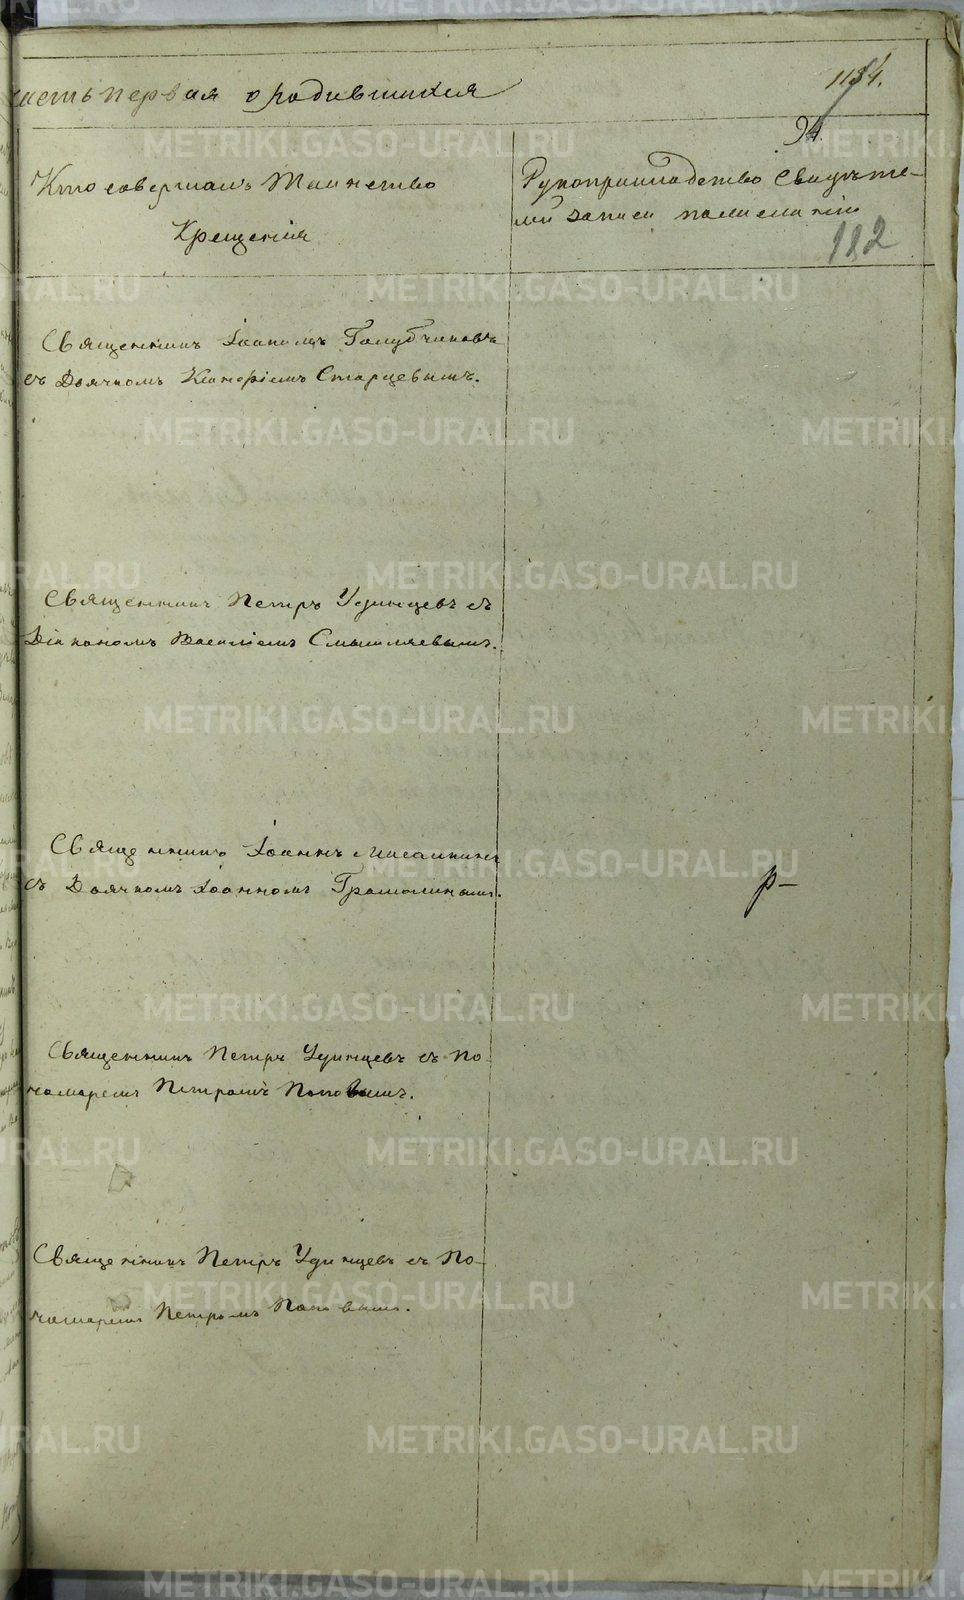 часть первая о родившихся
1184.
94.
Кто совершалъ Таинство
Крещенія
Рукоприкладство Свидѣте-
лей записи по желанію
112
Священникъ Іоаннъ Голубчиковъ
съ Дьячкомъ Старцевымъ.
Священникъ Петръ Удинцевъ съ
Діакономъ Василіемъ Смышляевымъ.
Священникъ Іоаннъ
съ Дьячкомъ Іоанномъ Грамолинымъ.
р-
Священникъ Петръ Удинцевъ съ По-
номаремъ Петромъ Поповымъ.
Священникъ Петръ Удинцевъ съ По-
номаремъ Петромъ Поповымъ.
METRIKI.GASO-URAL.RU